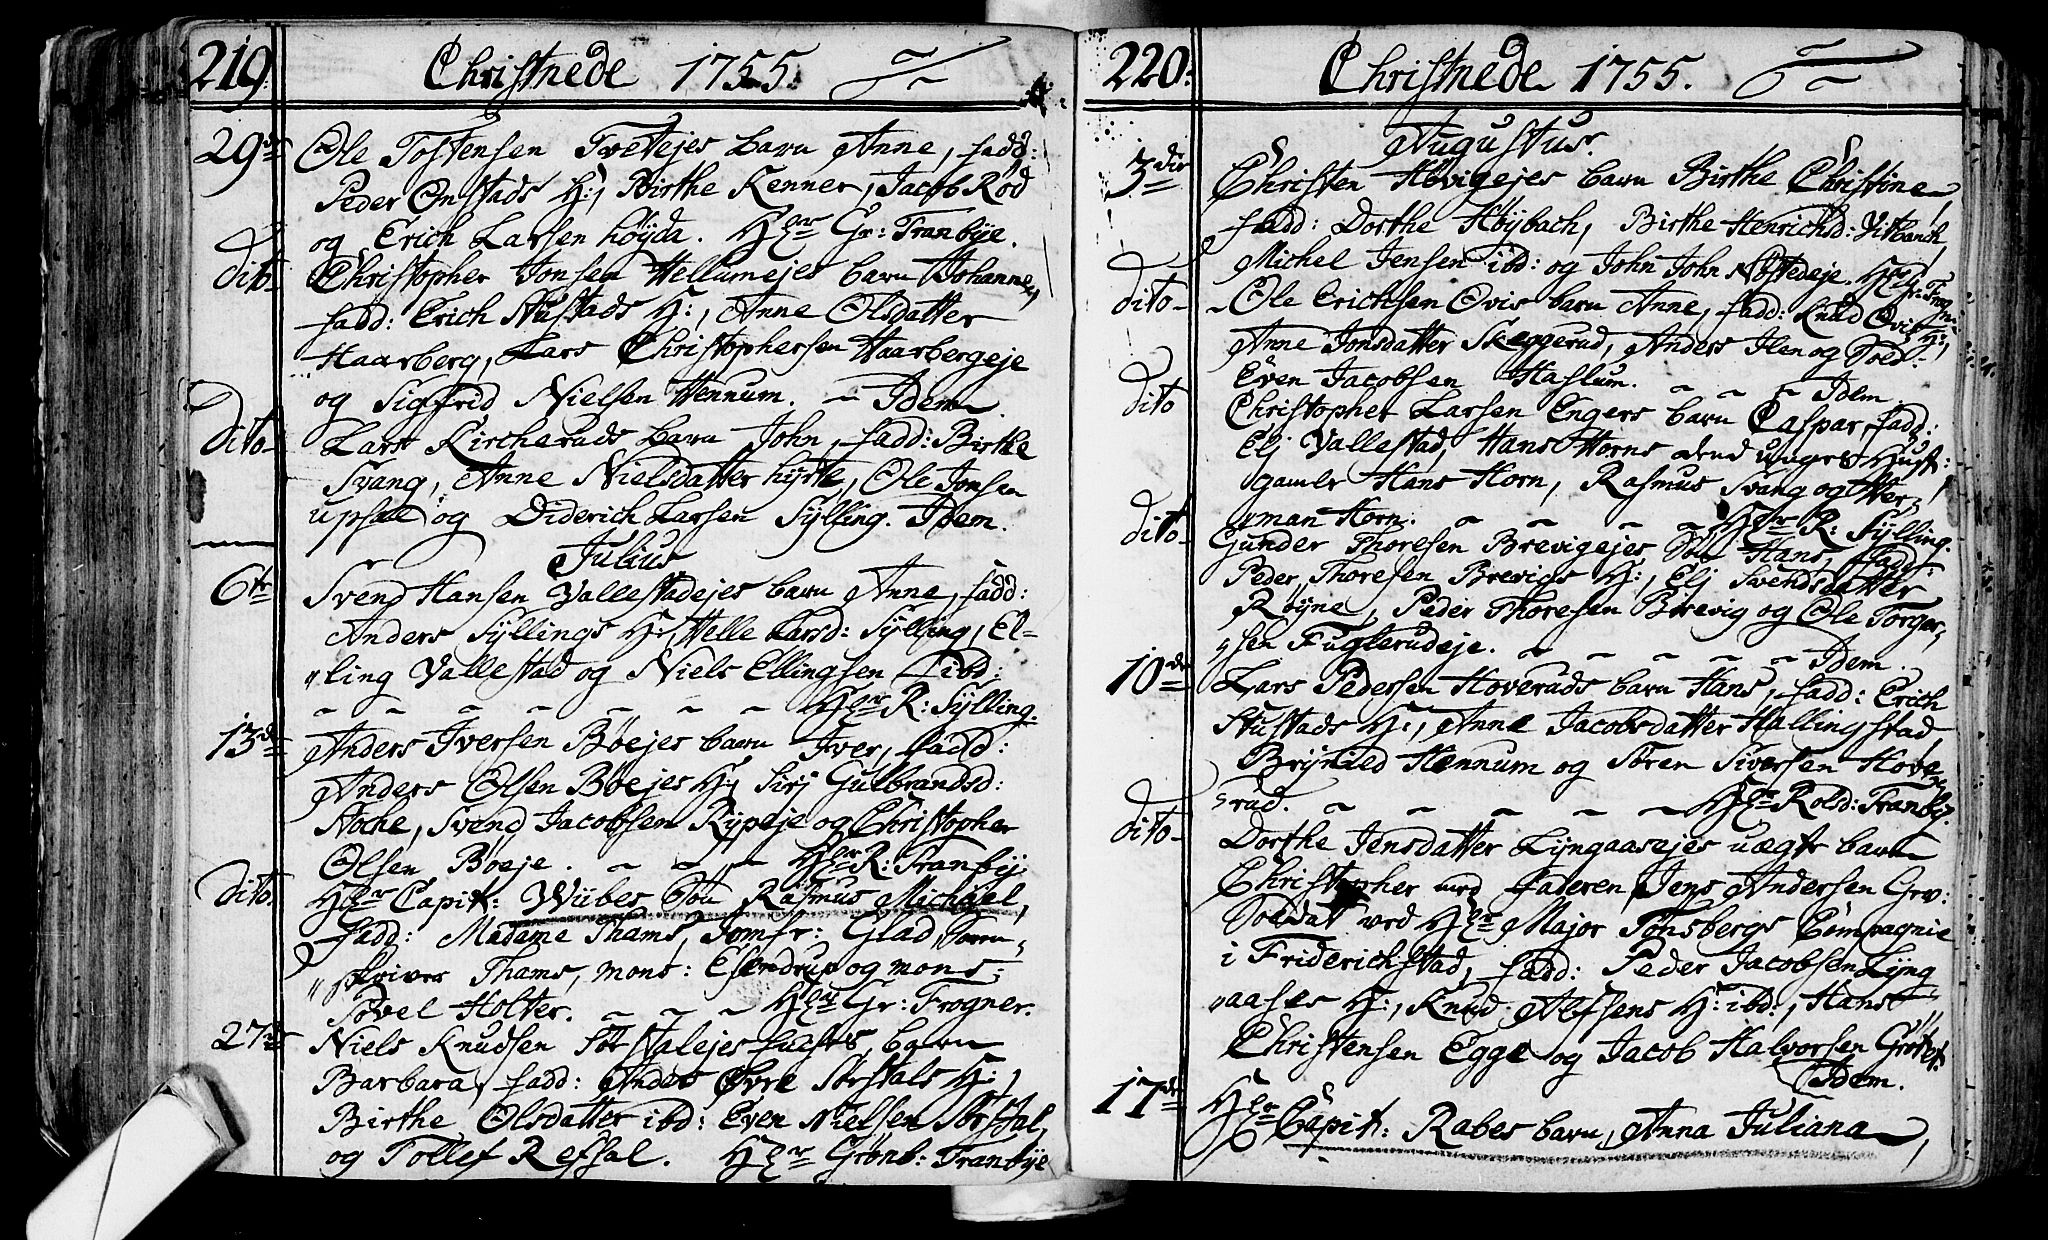 219. Christnede 1755.
29de Ole Tostensen Tvetejes barn Anne, fadd:
Peder Onstads H:, Birthe Kenner, Jacob Röd
og Erich Larsen höyda. Hr Gr: Tranbye.
dito. Christopher Jonsen Hellumejes barn Johanne,
fadd: Erich Nustads H:, Anne Olsdatter
Haarberg, Lars Christophersen Haarbergeje
og Sigfrid Nielsen Hennum. Idem.
dito Lars Kircheruds barn John, fadd: Birthe
Svang, Anne Nielsdatter hyrte, Ole Jonsen
upsal og Diderich Larsen Sylling. Idem.
Julius
6te Svend Hansen Vallestadejes barn Anne, fadd:
Anders Syllings H:, Helle Larsd: Sylling, El-
"ling Vallestad og Niels Ellingsen ibd:
Hr R: Sylling.
13de Anders Iversen Böejes barn Iver, fadd:
Anders Olsen Böejes H:, Sirj Gulbrandsd:
Noche, Svend Jacobsen Rypeje og Christopher
Olsen Böeje. Hr R: Tranby.
dito. Hr Capit: Wübes Sön Rasmus Michael,
fadd: Madame Thams, Jomfr: Glad, Soren-
"skriver Thams, mons: Esendrup og mons:
Povel Holter. Hr Gr: Frogner.
27de Niels Knudsen Sörstalejes barn
Barbara, fadd: Andes Övre Sörstals H:,
Birthe Olsdatter ibd: Even Nielsen Sörstal,
og Tollef Refsal. Hr Grönb: Tranbye
220. Christnede 1755.
Augustus.
3die Christen Hövigejes barn Birthe Christine,
fadd: Dorthe Höybach, Birthe Henrichsd: Vitbanch,
Michel Jensen ibd: og John John Nöstedeje. Hr Gr: Frogn:
dito Ole Erichsen Ovis barn Anne, fadd: Knud Ovis H:,
Anne Jonsdatter Skeggerud, Anders Ilen og Sold:
Even Jacobsen Haslum. Idem.
dito Christopher Larsen Engers barn Caspar, fadd:
Elj Vallestad, Hans Horns dend unges Hust:
gamle Hans Horn, Rasmus Svang og Her,
"man Horn. Hr R: Sylling.
dito Gunder Thoresen Brevigejes Sön Hans, fadd:
Peder Thoresen Brevigs H:, Elj Svendsdatter
Röyne, Peder Thoresen Brevig og Ole Torger,
"sen Fuglerudeje. Idem.
10de Lars Pedersen Hoveruds barn Hans, fadd: Erich
Stustads H:, Anne Jacobsdatter Hallingstad,
Brynild Hennum og Sören Siversen Hove-
"rud. Hr Rold: Tranby.
dito Dorthe Jensdatter Lyngaasejes uægte barn
Christopher med faderen Jens Andersen Grv:
Soldat ved Hr Major Tonsbergs Compagnie
i Friderichstad, fadd: Peder Jacobsen Lyng
"aases H:, Knud Alfsens H: ibd:, Hans
Christensen Egge og Jacob Halvorsen Gröttet.
Idem.
17de Hr Capit: Rabes barn, Anna Juliana,